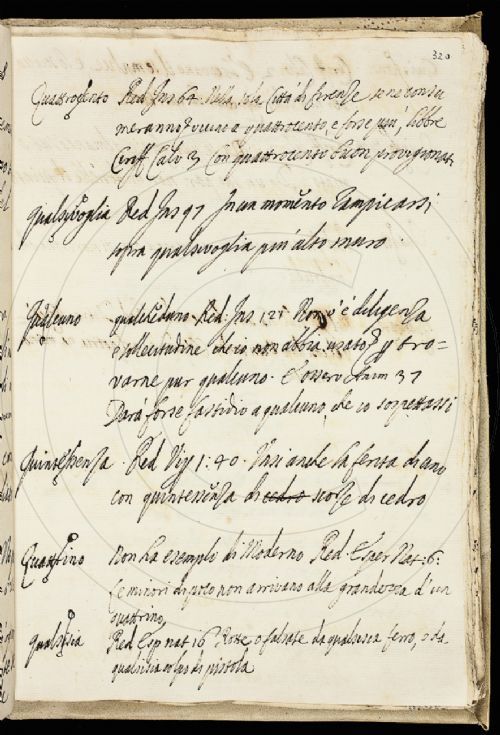 320
Quattrocento Red Ins 64. Nela sola Città di firenze se ne consu
meranno vicino a quattrocento, e forse più, libbre
Ciriff Calv 3 Con quattrocento buon provigionati
Qualsivoglia Red Ins 97 In un momento rampicarsi
sopra qualsivoglia più alto muro
Qualcuno qualcheduno Red: Ins 121 Non v'è diligenza
e sollecitudine ch'io non abbia usato p tro-
varne pur qualcuno. E Osserv Anim 37
Darà forse fastidio a qualcuno, che io sospettassi
Quintessenza Red Vip 1: 40. Unsi anche la ferita
con quintessenza di cedro scorze di cedro
Quattrino Non ha esempli di Moderno Red. Esper Nat: 6:
Le minori di poco non arrivano alla grandezza d'un
quattrino,
Qualsisia Red Esp nat 16 Rotte o falsate da qualsisia ferro, o da
qualsisia colpo di pistola